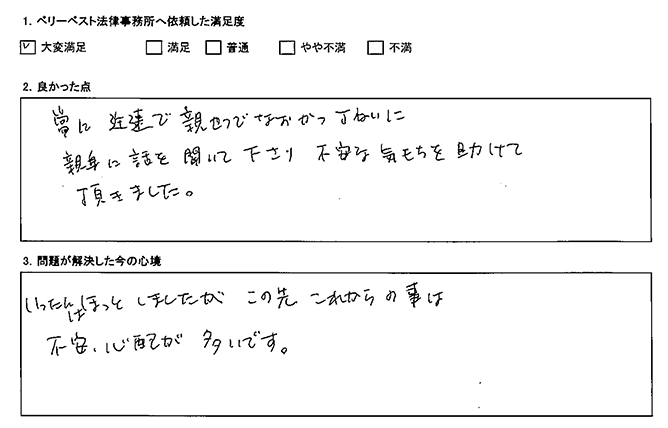 1. ベリーベスト法律事務所へ依頼した満足度
大変満足 満足 普通 やや不満 不満
2. 良かった点
常に 迅速で 親せつで なおかつ 丁ねいに
親身に 話を 聞いて 下さり 不安な 気もちを 助けて
頂きました。
3. 問題が解決した今の心境
いったんはほっと しましたが この先 これからの事は
不安、心配が 多いです。